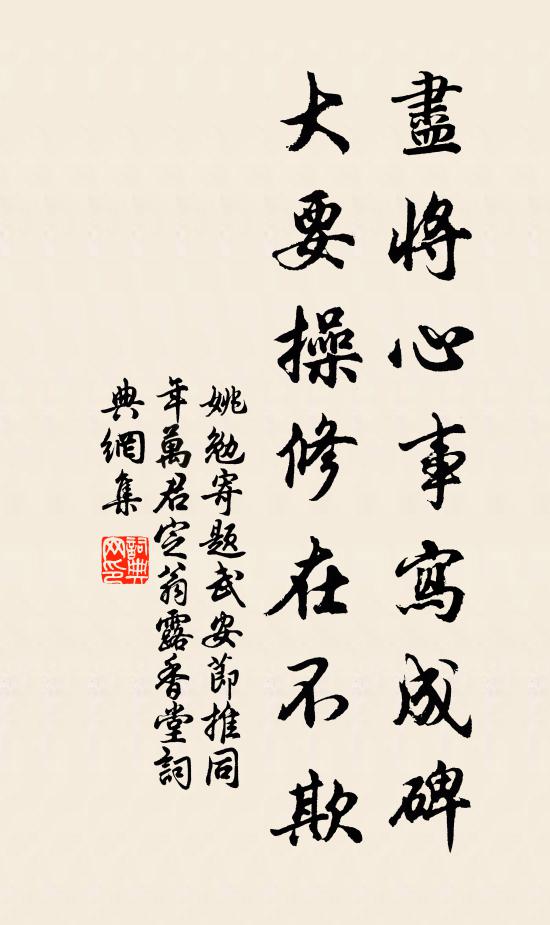 盡將心事寫成碑
大要操修在不欺
姚勉寄題武安節推同
年萬君定翁露香堂詞
典網集
詞典
网印